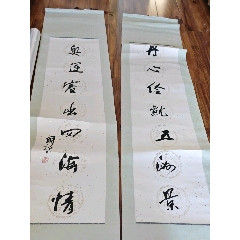 丹心绘就五洲景
奥运出四海情